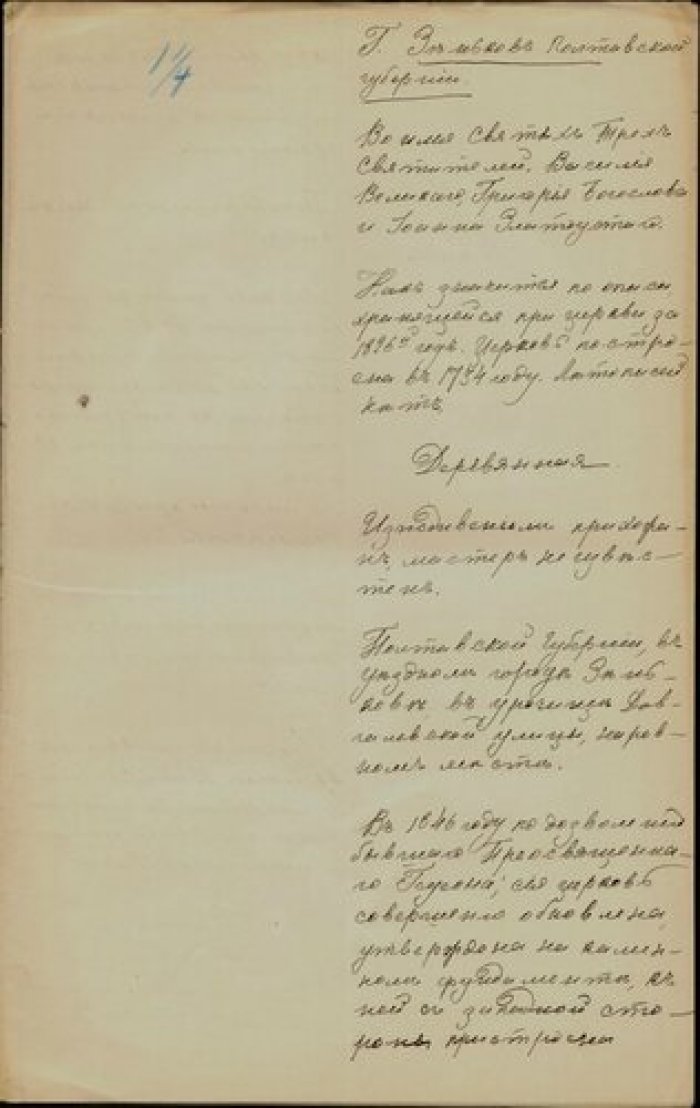 1 1/4
Г. Зѣньковъ Полтавской
губерніи.
Во имя Святыхъ Трехъ
Святителей, Василія
Великаго, Григорія Богослова
и Іоанна Златоустаго.
значится по описи,
хранящейся при церкви за
годъ. Церковь постро-
ена въ году. Лѣтописей
нѣтъ.
Деревянная
прихожа-
нъ, мастеръ неизвѣс-
тенъ.
Полтавской Губерніи, въ
уѣздномъ городѣ Зѣнь-
ковѣ, въ урочищѣ Дов-
галевской улицы, на ров-
номъ мѣстѣ.
Въ 1846 году по дозволенію
бывшаго Преосвященна-
го Гедеона, сія церковь
совершенно обновлена,
утверждена на камен-
номъ фундаментѣ, къ
ней съ западной сто-
роны пристроена